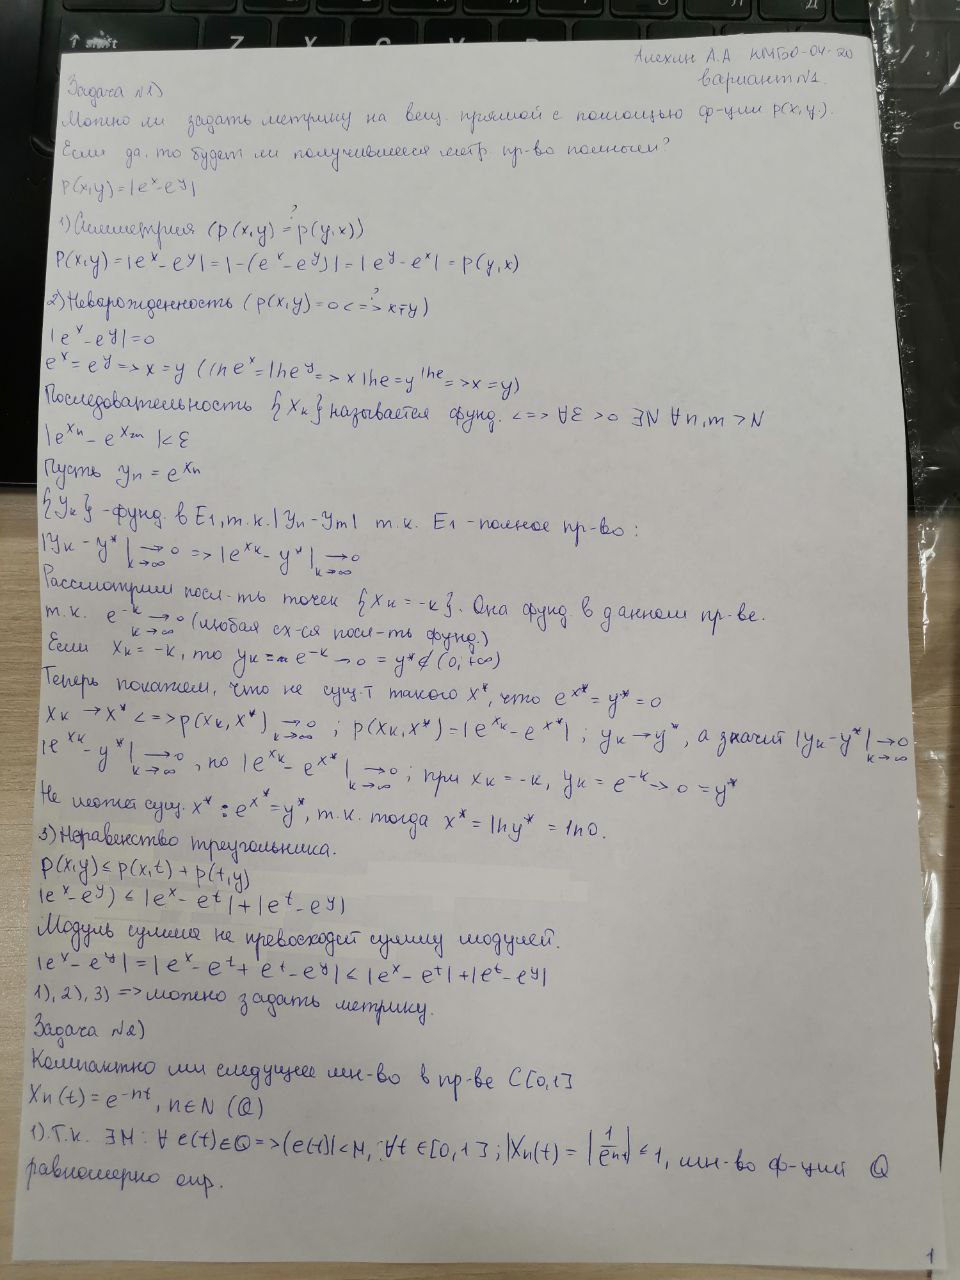 Алехин А.А КМБО-04-20
вариант №1.
Задача №1)
Можно ли задать метрику на вещ. прямой с помощью ф-ции p(x,y).
Если да, то будет ли получившееся метр. пр-во полным?
P(x,y)=|e^x-e^y|
1) Симметрия (p(x,y) ?= p(y,x))
P(x,y)=|e^x-e^y|=|-(e^x-e^y)|=|e^y-e^x|=p(y,x)
2) Невырожденность (p(x,y)=0 <?=> x=y)
|e^x-e^y|=0
e^x=e^y=>x=y (lne^x=lne^y=>x lne=y lne=>x=y)
Последовательность {x_k} называется фунд. <=> ∀ε>0 ∃N ∀n,m>N
|e^{x_n}-e^{x_m}|<ε
Пусть y_n=e^{x_n}
{y_k} -фунд. в E1, т.к. |y_n-y_m| т.к. E1-полное пр-во:
|y_k-y*| →0 k→∞ =>|e^{x_k}-y*| →0 k→∞
Рассмотрим посл-ть точек {x_k=-k}. Она фунд. в данном пр-ве.
т.к. e^{-k} →0 k→∞ (любая сх-ся посл-ть фунд.)
Если x_k=-k, то y_k=e^{-k}→0=y*∉(0,+∞)
Теперь покажем, что не сущ-т такого x*, что e^{x*}=y*=0
x_k→x*<=>p(x_k,x*) →0 k→∞; p(x_k,x*)=|e^{x_k}-e^{x*}|; y_k→y*, а значит |y_k-y*| →0 k→∞
|e^{x_k}-y*| →0 k→∞, но |e^{x_k}-e^{x*}| →0 k→∞; при x_k=-k, y_k=e^{-k}→0=y*
Не может сущ. x*: e^{x*}=y*, т.к. тогда x*=lny*=ln0.
3) Неравенство треугольника.
p(x,y)≤p(x,t)+p(t,y)
|e^x-e^y|≤|e^x-e^t|+|e^t-e^y|
Модуль суммы не превосходит сумму модулей.
|e^x-e^y|=|e^x-e^t+e^t-e^y|≤|e^x-e^t|+|e^t-e^y|
1), 2), 3) => можно задать метрику.
Задача №2)
Компактно ли следущее мн-во в пр-ве C[0,1]
X_n(t)=e^{-nt}, n∈N (Q)
1). Т.к. ∃M: ∀e(t)∈Q=>|e(t)|<M, ∀t∈[0,1]; |X_n(t)=|1/e^{nt}|≤1, мн-во ф-ций Q
равномерно огр.
1